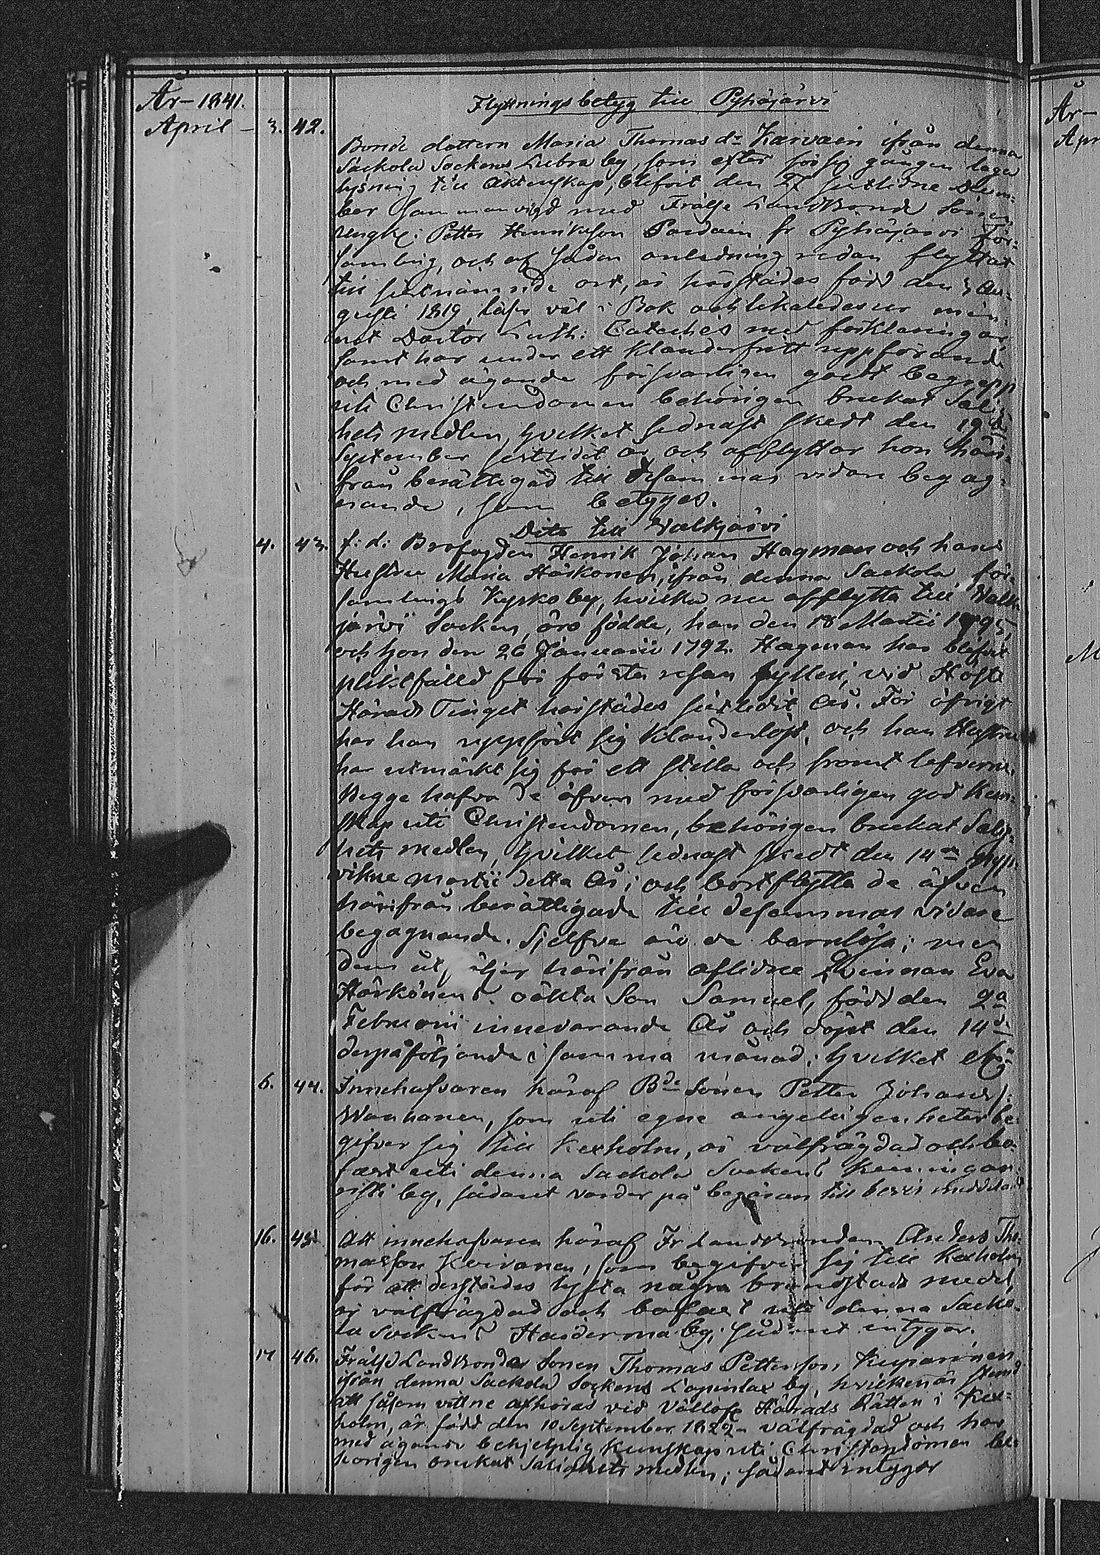 År 1841.
Flyttningsbetyg till Pyhäjärvi
År
April 3. 42.
Bonde dottern Maria Thomas dr Karvain ifrån denna
Sackola Sockens by, som efter gången laga
lysning till Äktenskap, blifvit den 27 sistlidne Decem-
ber samman vigd med Frälse Landbonde Sonen
Petter Henriksson fr Pyhäjärvi För-
samling, och af sådan anledning redan flyttat
till sistnämnde ort, är härstädes född den 3 Au-
gusti 1819, läser väl i Bok och utan
Doctor Luth: Cateches med förklaringar
samt har under ett klanderfritt uppförande
och med ägande försvarligen godt begrepp
uti Christendomen behörigen brukat Salig-
hets medlen, hvilket sednast skedt den 19
September sistlidit år och afflyttar hon häri-
från berättigad till desammas vidare begag-
nande, som betyges.
Dito till Valkjärvi
4. 43. f: d: Brofogden Henrik Johan Hagman och hans
Hustru Maria Härkönen, ifrån denna Sackola för-
samlings Kyrko by, hvilka nu afflytta till Valk-
järvi Socken, äro födde, han den 18 Martii 1795,
och hon den 26 Januarii 1792. Hagman har blifvit
pliktfälld för första resan fylleri, vid Höste
Härads Tinget härstädes sistledit År. För öfrigt
har han uppfört sig klanderlöst, och han Hustru
har utmärkt sig för ett stilla och fromt lefverne.
Begge hafva de äfven med försvarligen god kun-
skap uti Christendomen, behörigen brukat Salig-
hets medlen, hvilket sednast skedt den 14de
vikne martii detta År; och bortflytta de äfven
härifrån berättigade till desammas vidare
begagnande. Sjelfva äro de barnlösa; men
dem åtföljer härifrån aflidne Qvinnan Eva
Härkönens oäkta Son Samuel, född den 2a
Februarii innevarande År och döpt den 14de
derpåföljande i samma månad; hvilket
6. 44. Innehafvaren häraf Bde Sonen Petter Johanss:
Wanhanen, som uti egne angelägenheter be-
gifver sig till Kexholm, är välfrägdad och bo-
fast uti denna Sackola Sockens
by, sådant varder på begäran till bevis meddeladt
16. 45. Att innehafvaren häraf Fr Landbonden Anders Tho-
masson Kivanen, som begifver sig till Kexholm
för att derstädes lyfta några brandstads medel
är välfrägdad och bofast uti denna Sacko-
la Sockens by; sådant intygar.
17 46. Frälse Landbonde Sonen Thomas Pettersson Kuparinen
ifrån denna Sackola Sockens Lapinlax by, hvilken är stämd
att såsom vittne afhöras vid Vällofl Härads Rätten i Kex-
holm, är född den 10 September 1822 välfrägdad och har
med ägande behjelplig kunskap uti Christendomen be-
hörigen brukat Salighets medlen; sådant intygar